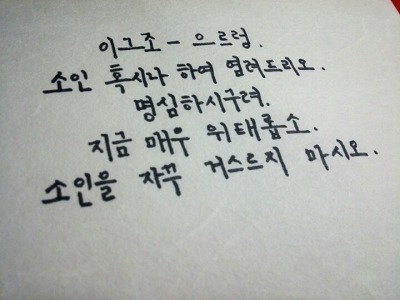 이그조 - 으르렁.
소인 혹시나 하여 염려드리오.
명심하시구려.
지금 매우 위태롭소.
소인을 자꾸 거스르지 마시오.